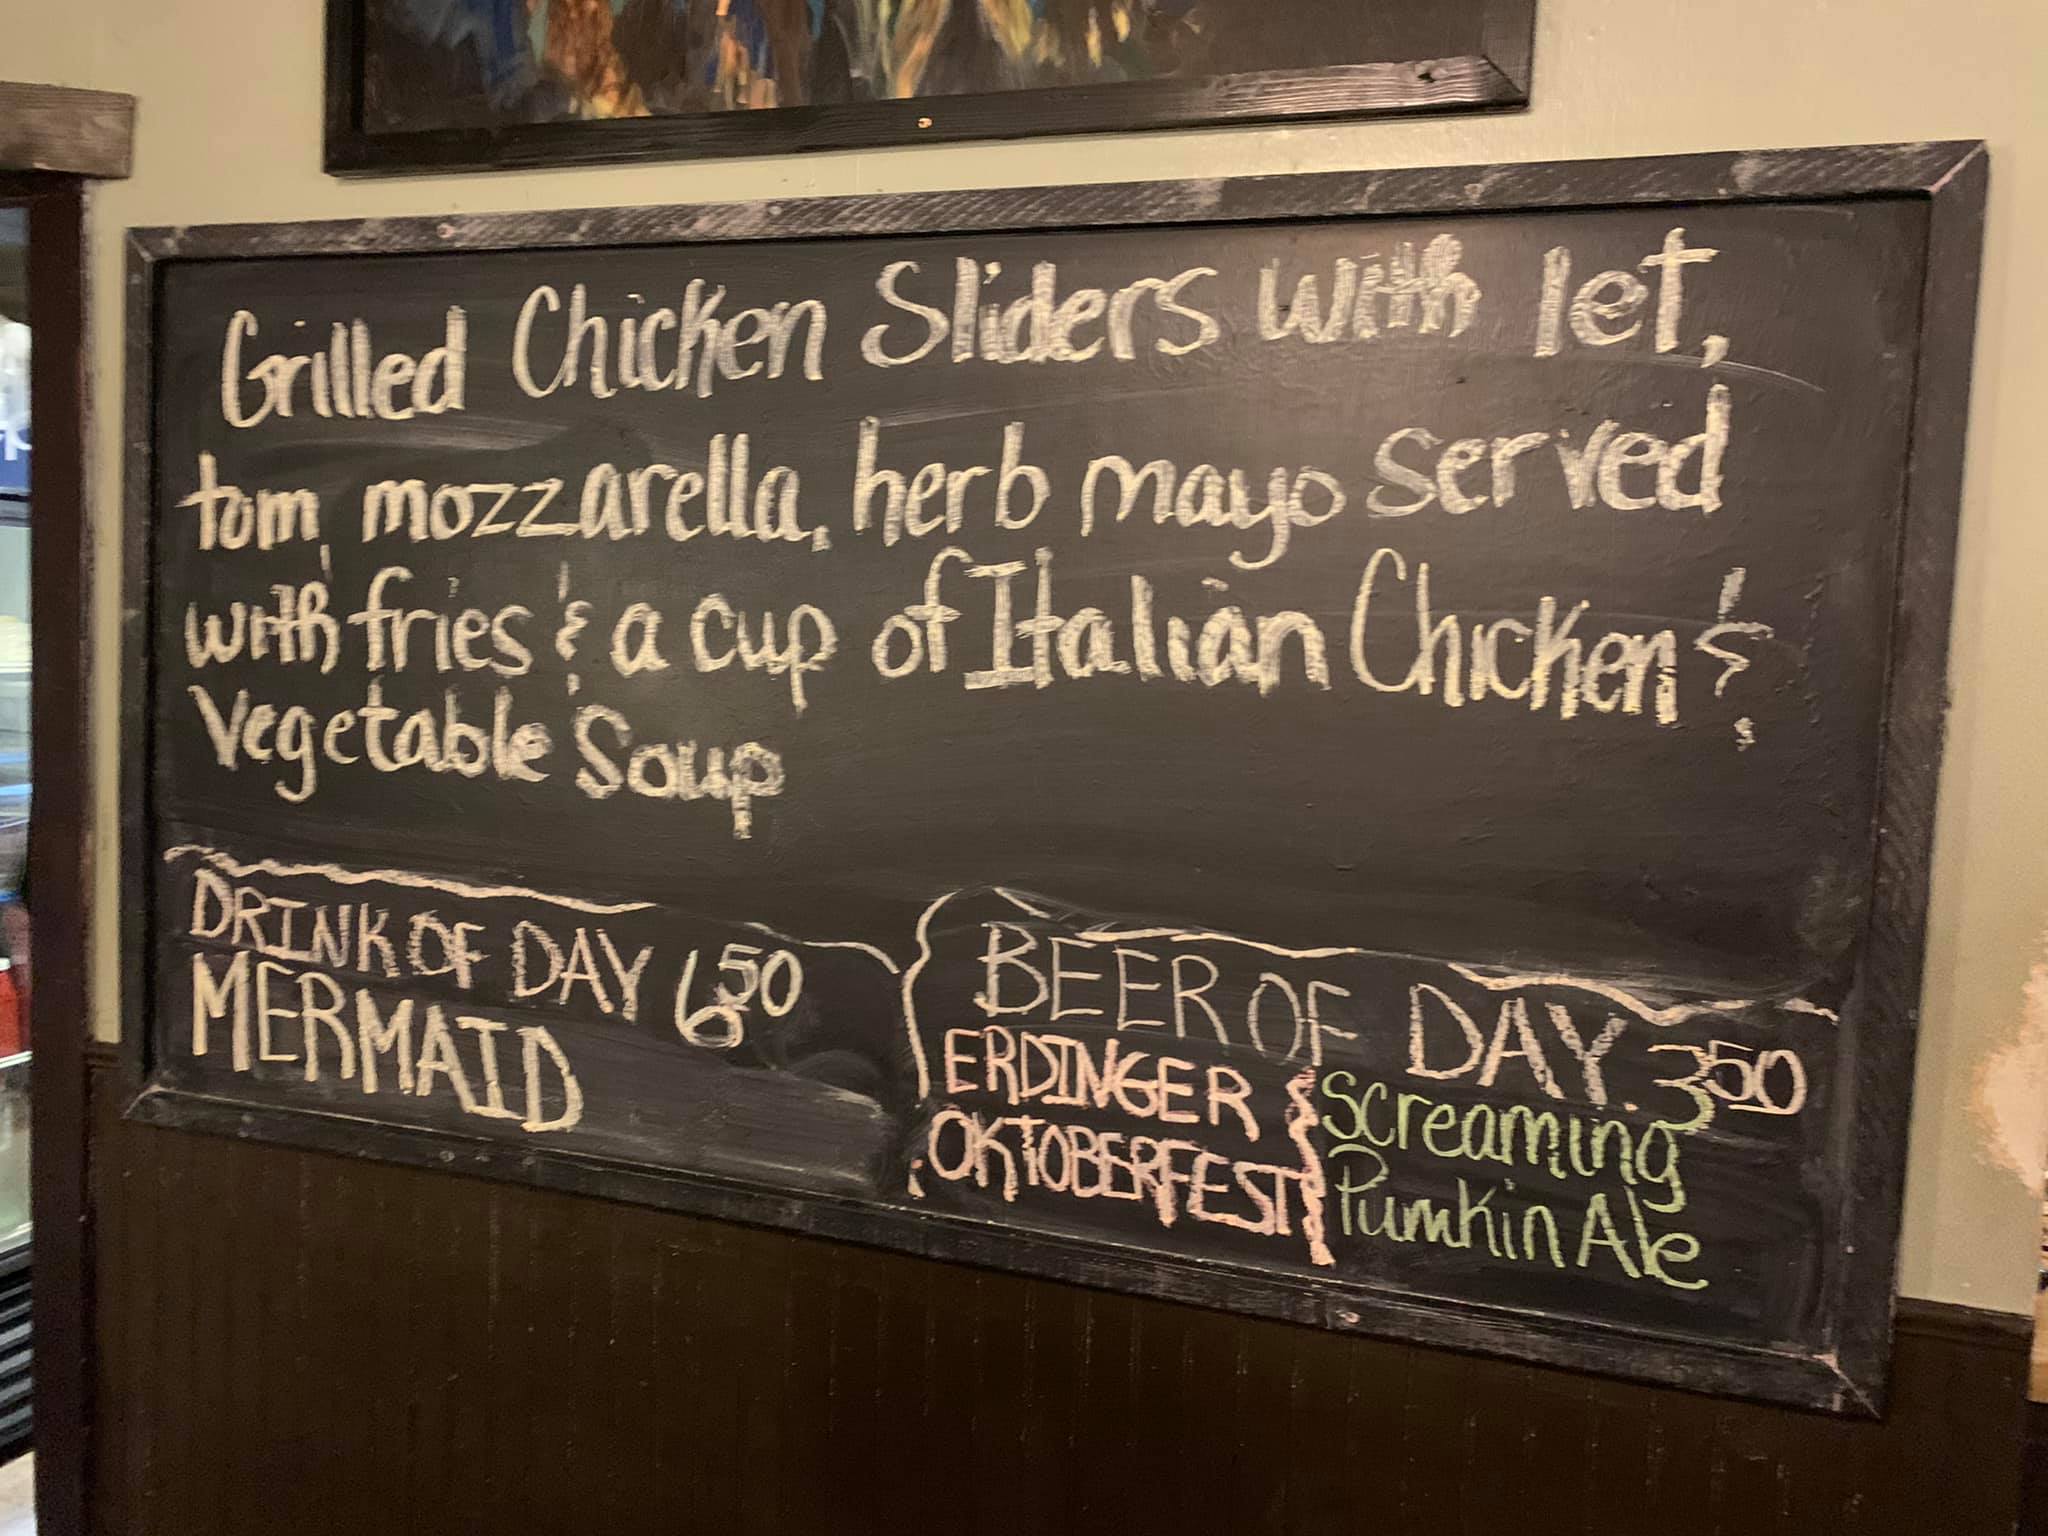 Grilled Chicken Sliders with let,
tom, mozzarella, herb mayo served
with fries & a cup of Italian Chicken &
Vegetable Soup
DRINK OF DAY 6.50
MERMAID
BEER OF DAY. 3.50
ERDINGER
OKTOBERFEST
Screaming
Pumkin Ale